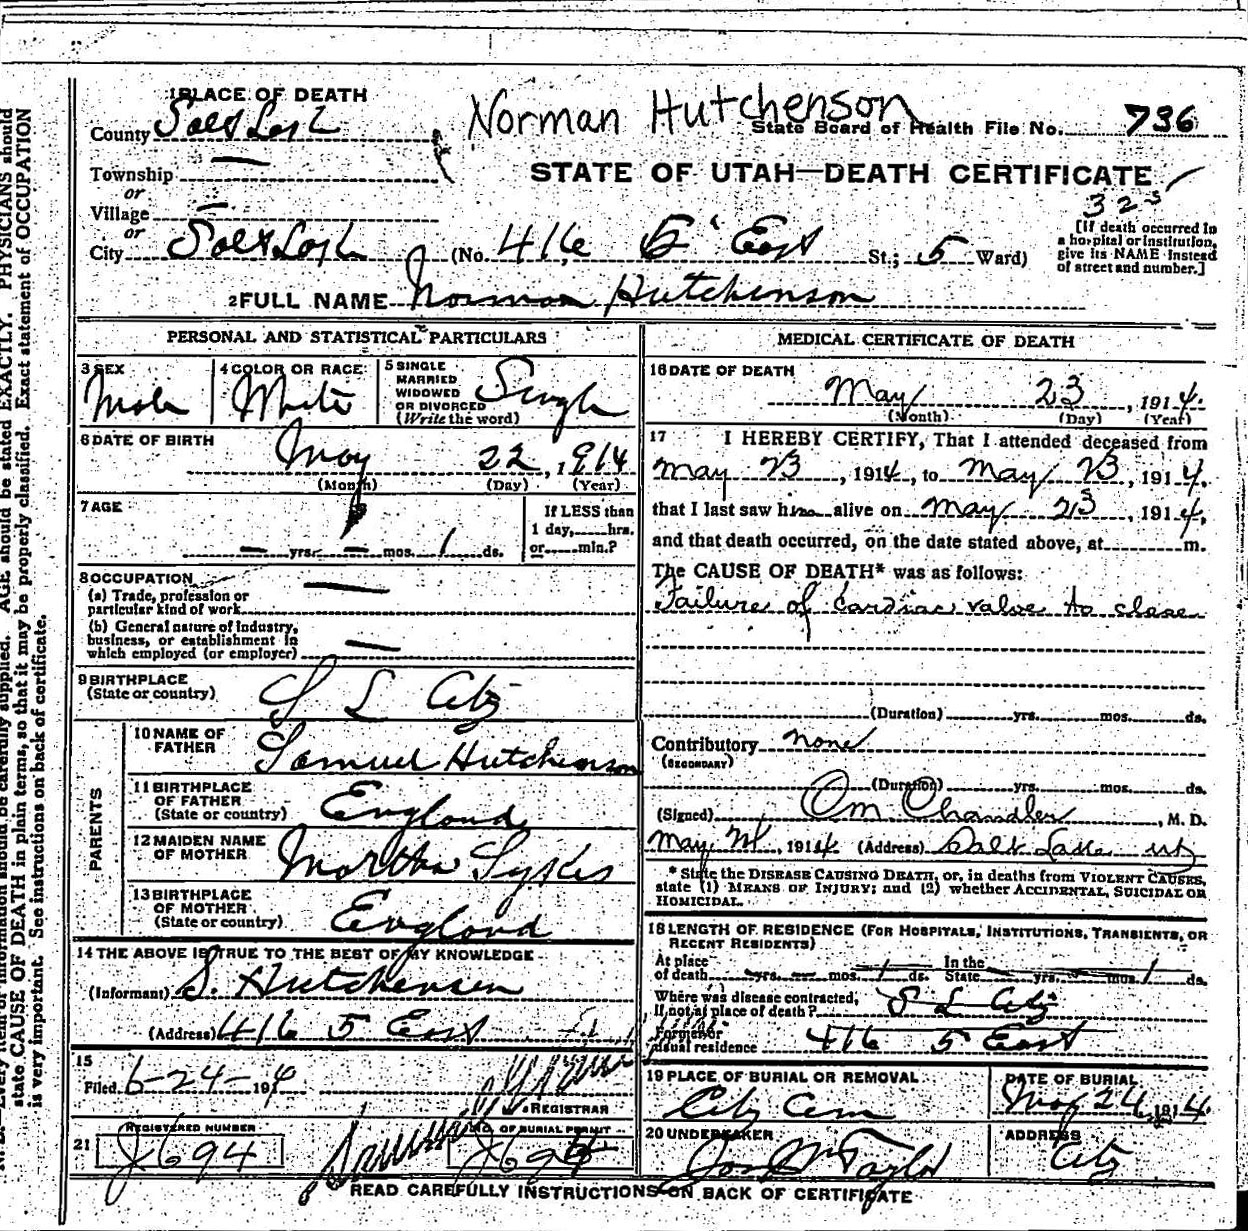 1 PLACE OF DEATH
Norman Hutchenson
County Salt Lake
State Board of Health File No. 736
Township —
STATE OF UTAH—DEATH CERTIFICATE
or
Village —
or
City Salt Lake (No. 416 5' East St.; 5 Ward)
[If death occurred in
a hospital or institution,
give its NAME instead
of street and number.]
2 FULL NAME Norman Hutchinson
PERSONAL AND STATISTICAL PARTICULARS
3 SEX
Male
4 COLOR OR RACE
White
5 SINGLE
MARRIED
WIDOWED
OR DIVORCED
(Write the word)
Single
6 DATE OF BIRTH
May 22, 1914
(Month) (Day) (Year)
7 AGE
— yrs. — mos. 1 ds.
If LESS than
1 day, hrs.
or min.?
8 OCCUPATION
(a) Trade, profession or
particular kind of work
(b) General nature of industry,
business, or establishment in
which employed (or employer)
9 BIRTHPLACE
(State or country)
S L City
PARENTS
10 NAME OF
FATHER
Samuel Hutchinson
11 BIRTHPLACE
OF FATHER
(State or country)
England
12 MAIDEN NAME
OF MOTHER
Martha Sykes
13 BIRTHPLACE
OF MOTHER
(State or country)
England
14 THE ABOVE IS TRUE TO THE BEST OF MY KNOWLEDGE
(Informant) S. Hutchensen
(Address) 416 5 East
15
Filed 6-24-1914
REGISTRAR
21
REGISTERED NUMBER
J694
NO. OF BURIAL PERMIT
J694
MEDICAL CERTIFICATE OF DEATH
16 DATE OF DEATH
May 23, 1914.
(Month) (Day) (Year)
17 I HEREBY CERTIFY, That I attended deceased from
May 23, 1914, to May 23, 1914,
that I last saw him alive on May 23, 1914,
and that death occurred, on the date stated above, at m.
The CAUSE OF DEATH* was as follows:
Failure of Cardiac valve to close
(Duration) yrs. mos. ds.
Contributory none
(SECONDARY)
(Duration) yrs. mos. ds.
(Signed) Om Chandler, M. D.
May, 1914 (Address) Salt Lake
* State the DISEASE CAUSING DEATH, or, in deaths from VIOLENT CAUSES,
state (1) MEANS OF INJURY; and (2) whether ACCIDENTAL, SUICIDAL OR
HOMICIDAL.
18 LENGTH OF RESIDENCE (FOR HOSPITALS, INSTITUTIONS, TRANSIENTS, OR
RECENT RESIDENTS)
At place
of death yrs. mos. 1 ds.
In the
State yrs. mos. 1 ds.
Where was disease contracted,
If not at place of death? S L City
Former or
usual residence 416 5 East
19 PLACE OF BURIAL OR REMOVAL
City Cem
DATE OF BURIAL
May 24, 1914.
20 UNDERTAKER
Jos Wm Taylor
ADDRESS
City
READ CAREFULLY INSTRUCTIONS ON BACK OF CERTIFICATE
information should be carefully supplied. AGE should be stated EXACTLY. PHYSICIANS should
state CAUSE OF DEATH in plain terms, so that it may be properly classified. Exact statement of OCCUPATION
is very important. See instructions on back of certificate.